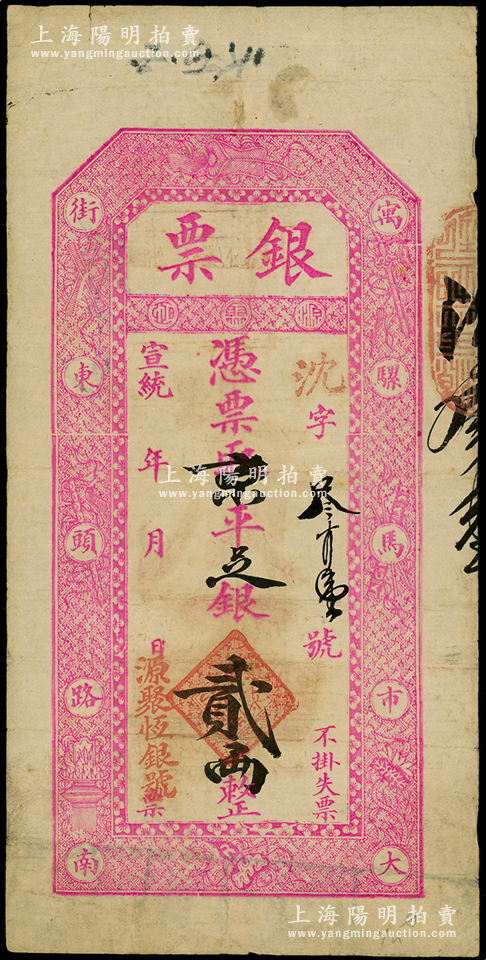 上海陽明拍賣
www.yangmingauction.com
銀票
源聚恒
寓騾馬市大
街東頭路南
沈字叁百壹號
不掛失票
憑票取京平足銀貳兩整
宣統年月日
源聚恆銀號票
上海陽明拍賣
www.yangmingauction.com
上海陽明拍賣
www.yangmingauction.com